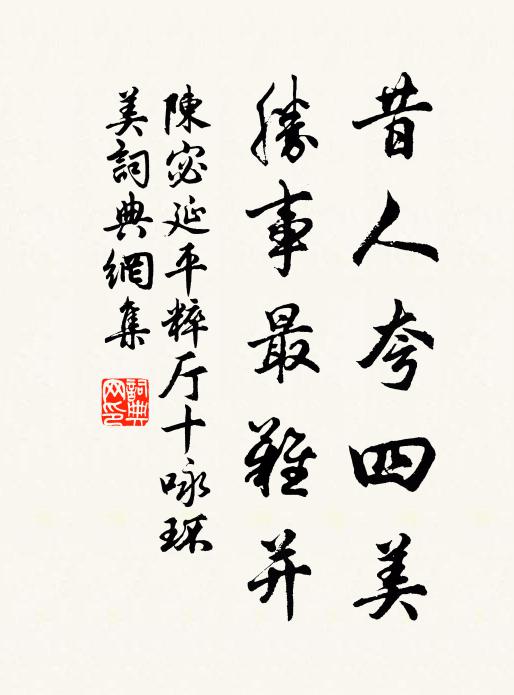 昔人夸四美
勝事最難并
陳宓延平粹厅十咏环
美詞典網集
詞典网印